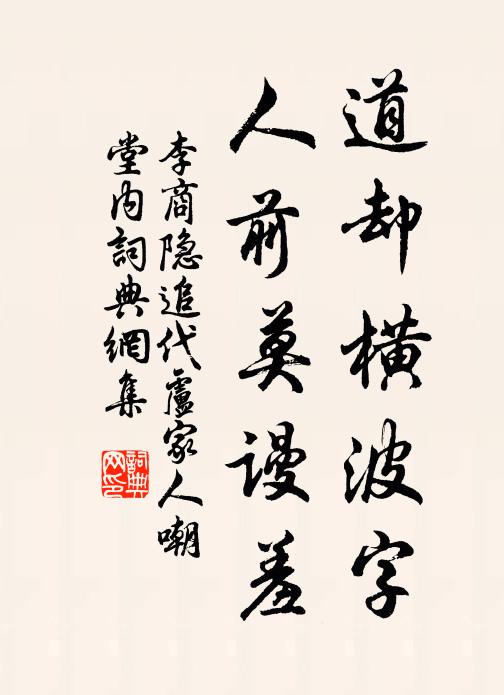 道却橫波字
人前莫謾羞
李商隐追代盧家人嘲
堂内詞典網集
詞典
网印